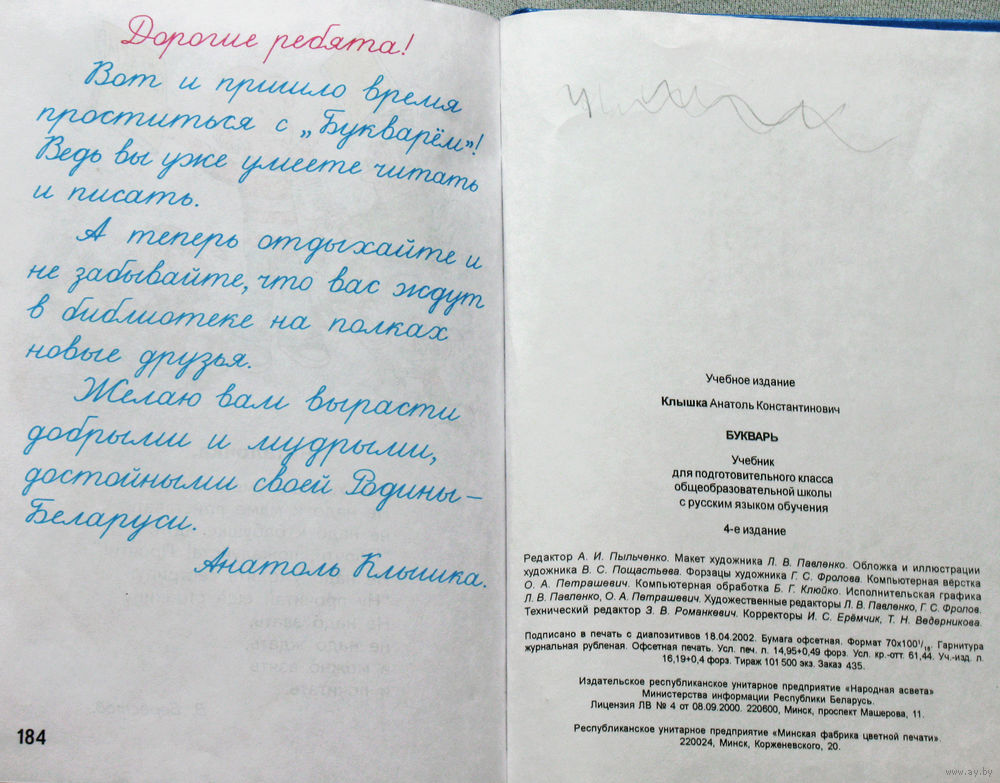 Дорогие ребята!
Вот и пришло время
проститься с „Букварём"!
Ведь вы уже умеете читать
и писать.
А теперь отдыхайте и
не забывайте, что вас ждут
в библиотеке на полках
новые друзья.
Желаю вам вырасти
добрыми и мудрыми,
достойными своей Родины –
Беларуси.
Анатоль Клышка.
184
Учебное издание
Клышка Анатоль Константинович
БУКВАРЬ
Учебник
для подготовительного класса
общеобразовательной школы
с русским языком обучения
4-е издание
Редактор А. И. Пыльченко. Макет художника Л. В. Павленко. Обложка и иллюстрации
художника В. С. Пощастьева. Форзацы художника Г. С. Фролова. Компьютерная вёрстка
О. А. Петрашевич. Компьютерная обработка Б. Г. Клюйко. Исполнительская графика
Л. В. Павленко, О. А. Петрашевич. Художественные редакторы Л. В. Павленко, Г. С. Фролов.
Технический редактор З. В. Романкевич. Корректоры И. С. Ерёмчик, Т. Н. Ведерникова.
Подписано в печать с диапозитивов 18.04.2002. Бумага офсетная. Формат 70х100¹/₁₆. Гарнитура
журнальная рубленая. Офсетная печать. Усл. печ. л. 14,95+0,49 форз. Усл. кр.-отт. 61,44. Уч.-изд. л.
16,19+0,4 форз. Тираж 101 500 экз. Заказ 435.
Издательское республиканское унитарное предприятие «Народная асвета»
Министерства информации Республики Беларусь.
Лицензия ЛВ № 4 от 08.09.2000. 220600, Минск, проспект Машерова, 11.
Республиканское унитарное предприятие «Минская фабрика цветной печати».
220024, Минск, Корженевского, 20.
www.ay.by